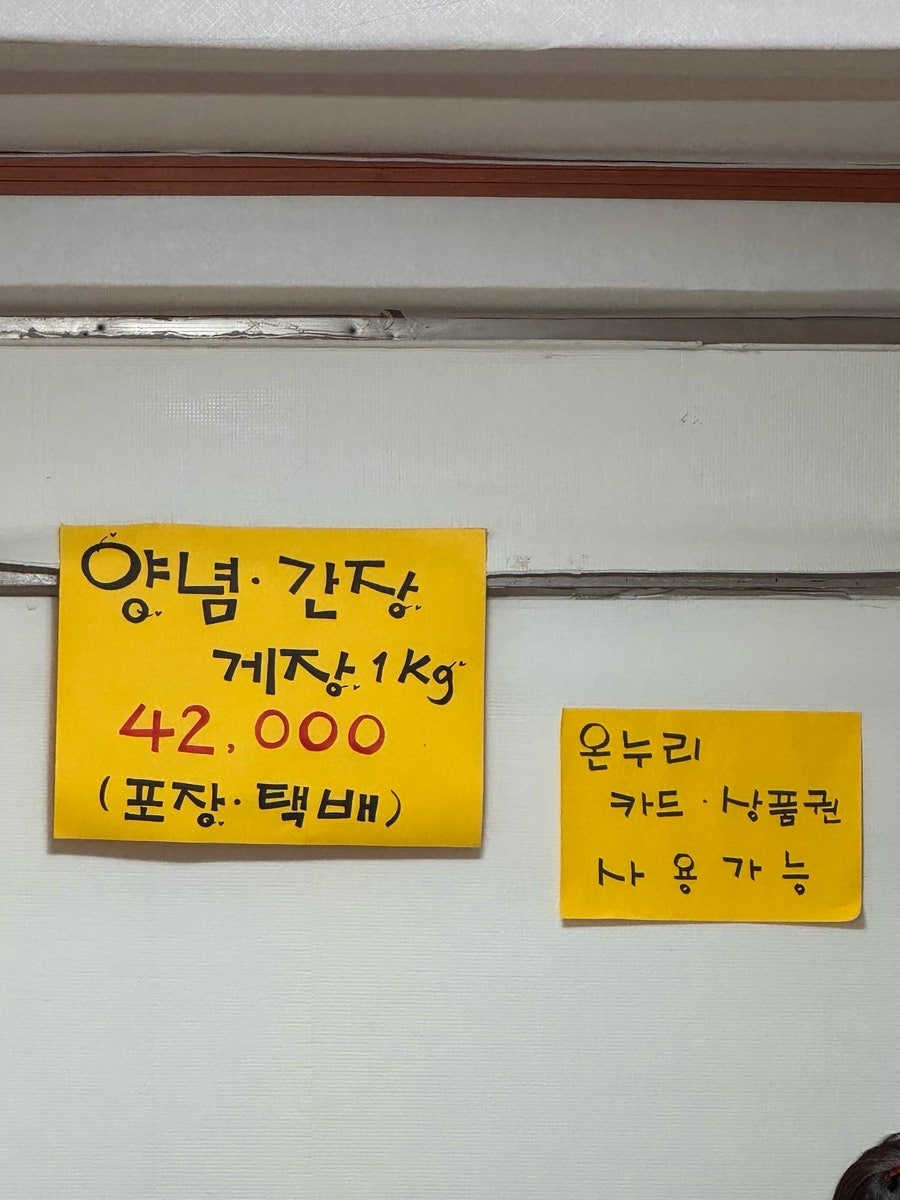 양념·간장
게장 1kg
42,000
(포장·택배)
온누리
카드·상품권
사용가능